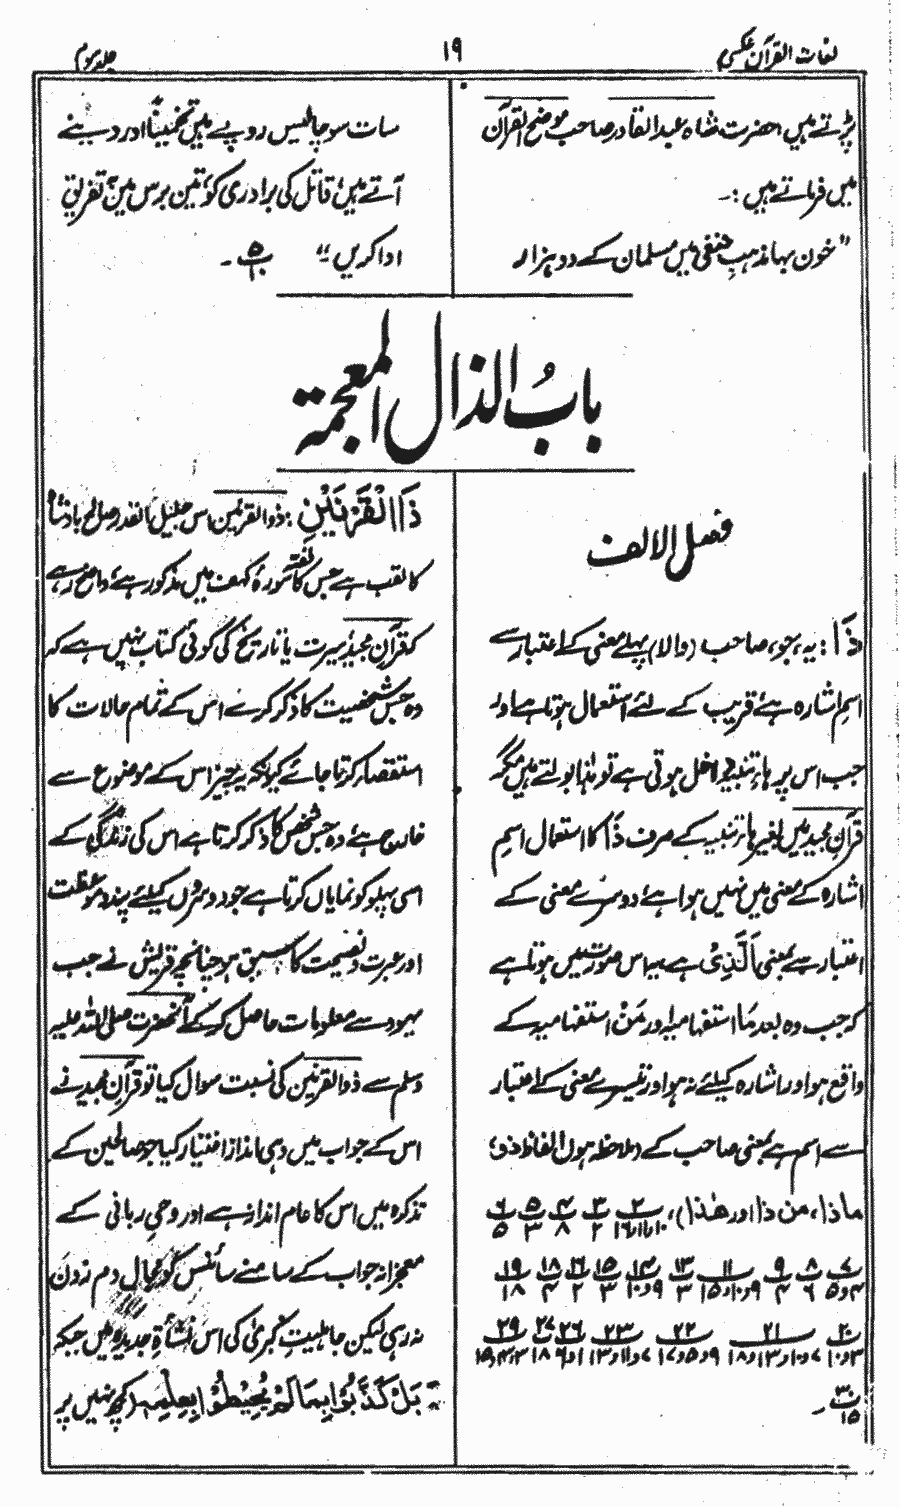 لغات القرآن عکسی
۱۹
جلد سوم
پڑتے ہیں حضرت شاہ عبدالقادر صاحب موضح القرآن
میں فرماتے ہیں :۔
"خون بہا مذہبِ حنفی میں مسلمان کے دو ہزار
سات سو چالیس روپے ہیں تخمیناً اور دینے
آتے ہیں قاتل کی برادری کو، تین برس میں بہ تفریق
ادا کریں"
بابُ الذال المعجمۃ
فصل الالف
ذَا: یہ، جو، صاحب (والا) پہلے معنی کے اعتبار سے
اسمِ اشارہ ہے، قریب کے لئے استعمال ہوتا ہے اور
جب اس پر ہاءِ تنبیہ داخل ہوتی ہے تو ہٰذا بولتے ہیں مگر
قرآنِ مجید میں بغیر ہاء تنبیہ کے صرف ذَا کا استعمال اسمِ
اشارہ کے معنی میں نہیں ہوا ہے، دوسرے معنی کے
اعتبار سے بمعنی اَلَّذِیْ ہے اس صورت میں ہوتا ہے
کہ جب وہ بعد مَا استفہامیہ اور مَنْ استفہامیہ کے
واقع ہو اور اشارہ کیلئے نہ ہو اور تیسرے معنی کے اعتبار
سے اسم ہے بمعنی صاحب کے (ملاحظہ ہوں الفاظ ذو،
ماذا، من ذا اور ھٰذا)،
ذَا الْقَرْنَیْنِ: ذوالقرنین اس جلیل القدر صالح بادشاہ
کا لقب ہے جس کا قصّہ سورۂ کہف میں مذکور ہے، واضح رہے
کہ قرآن مجید سیرت یا تاریخ کی کوئی کتاب نہیں ہے کہ
وہ جس شخصیت کا ذکر کرے اس کے تمام حالات کا
استقصاء کرتا جائے کیونکہ یہ چیز اس کے موضوع سے
خارج ہے، وہ جس شخص کا ذکر کرتا ہے اس کی زندگی کے
اسی پہلو کو نمایاں کرتا ہے جو دوسروں کیلئے پند و موعظت
اور عبرت و نصیحت کا سبق ہو چنانچہ قریش نے جب
یہود سے معلومات حاصل کر کے آنحضرت صلی اللہ علیہ
وسلم سے ذوالقرنین کی نسبت سوال کیا تو قرآن مجید نے
اس کے جواب میں وہی انداز اختیار کیا جو صالحین کے
تذکرہ میں اس کا عام انداز ہے اور وحیِ ربانی کے
معجزانہ جواب کے سامنے سائنس کو مجالِ دم زدن
نہ رہی لیکن جاہلیتِ کبریٰ کی اس نشأۃ جدیدہ میں جبکہ
بَلْ کَذَّبُوْا بِمَا لَمْ یُحِیْطُوْا بِعِلْمِہٖ (کچھ نہیں پر